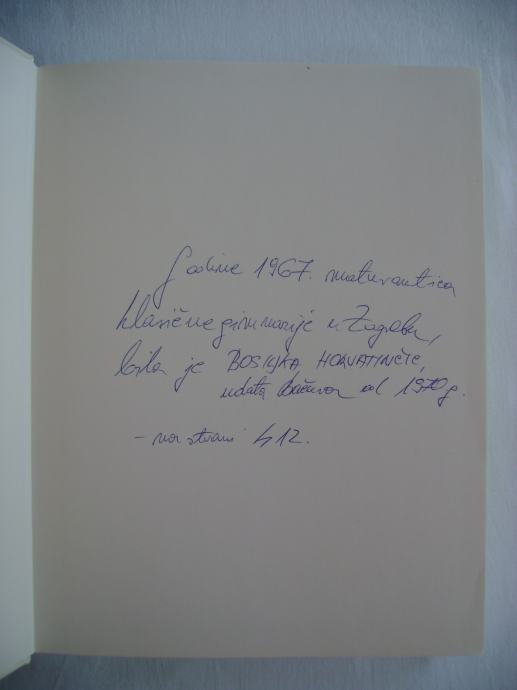 Godine 1967. maturantica
klasične gimnazije u Zagrebu,
bila je BOSILJKA HORVATINČIĆ,
udata od 1970g.
- na strani 412.